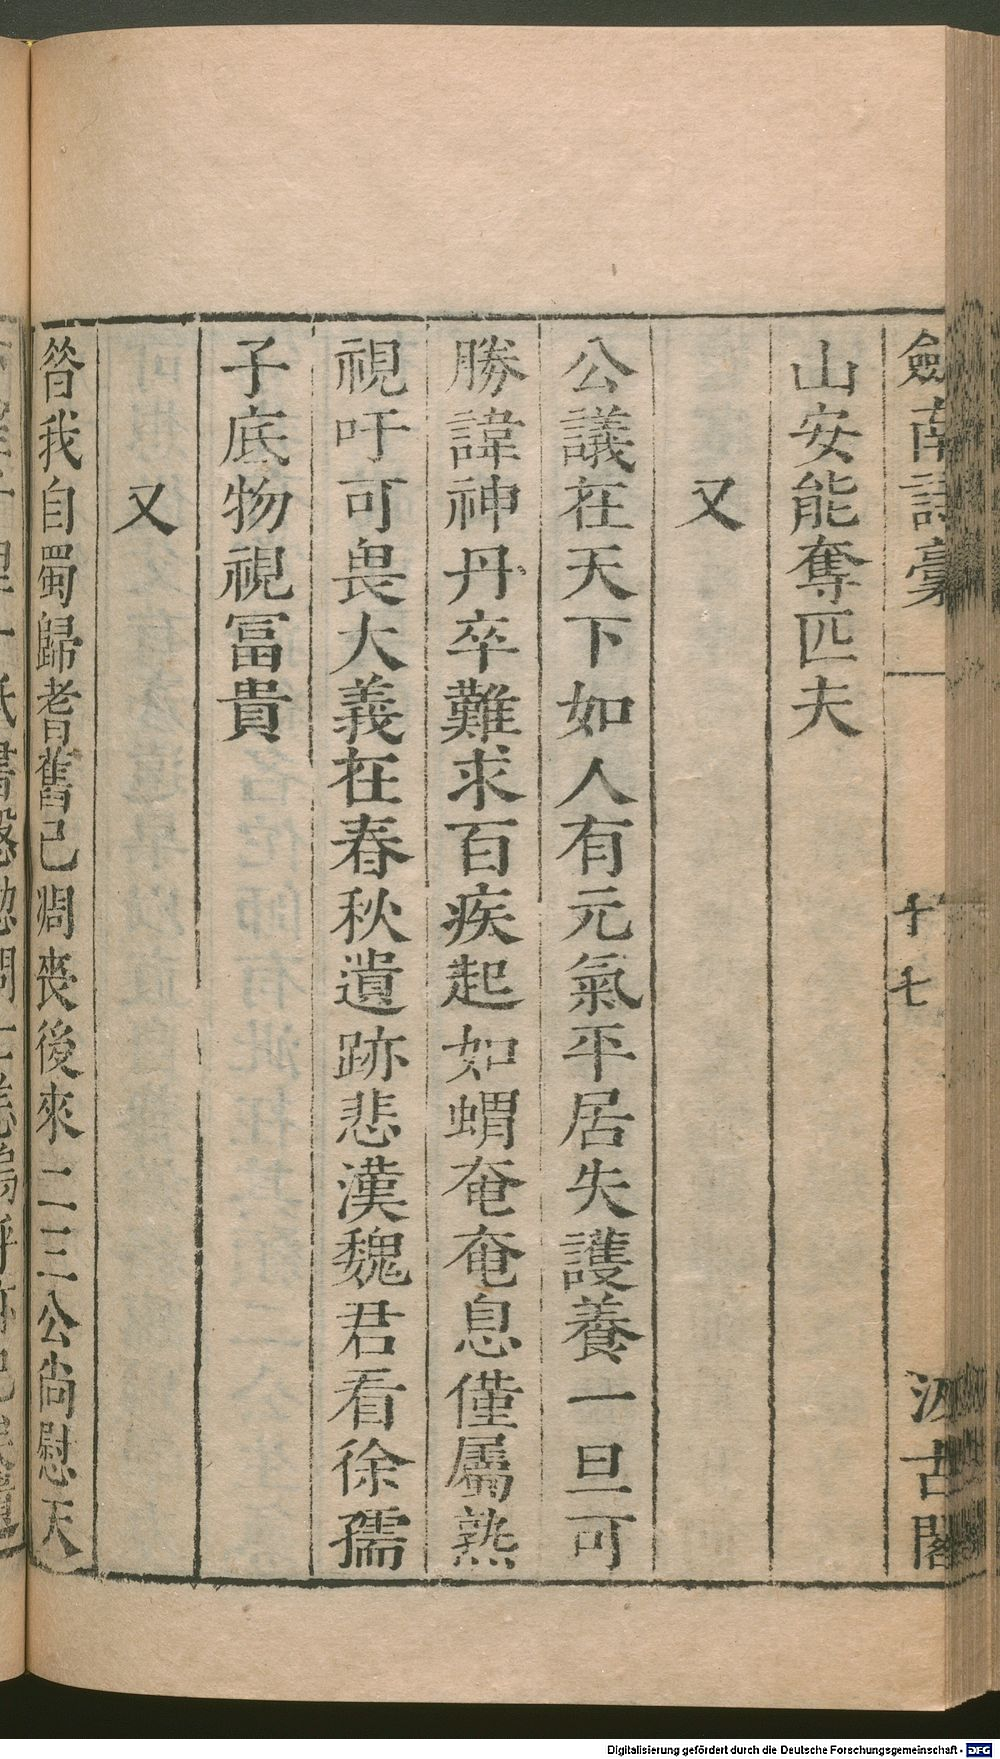 劍南詩稾
十七
汲古閣
山安能奪匹夫
又
公議在天下如人有元氣平居失護養一旦可
勝諱神丹卒難求百疾起如蝟奄奄息僅屬熟
視吁可畏大義在春秋遺跡悲漢魏君看徐孺
子底物視冨貴
又
昝我自蜀歸耆舊已凋喪後來二三公尚慰天
Digitalisierung gefördert durch die Deutsche Forschungsgemeinschaft - DFG